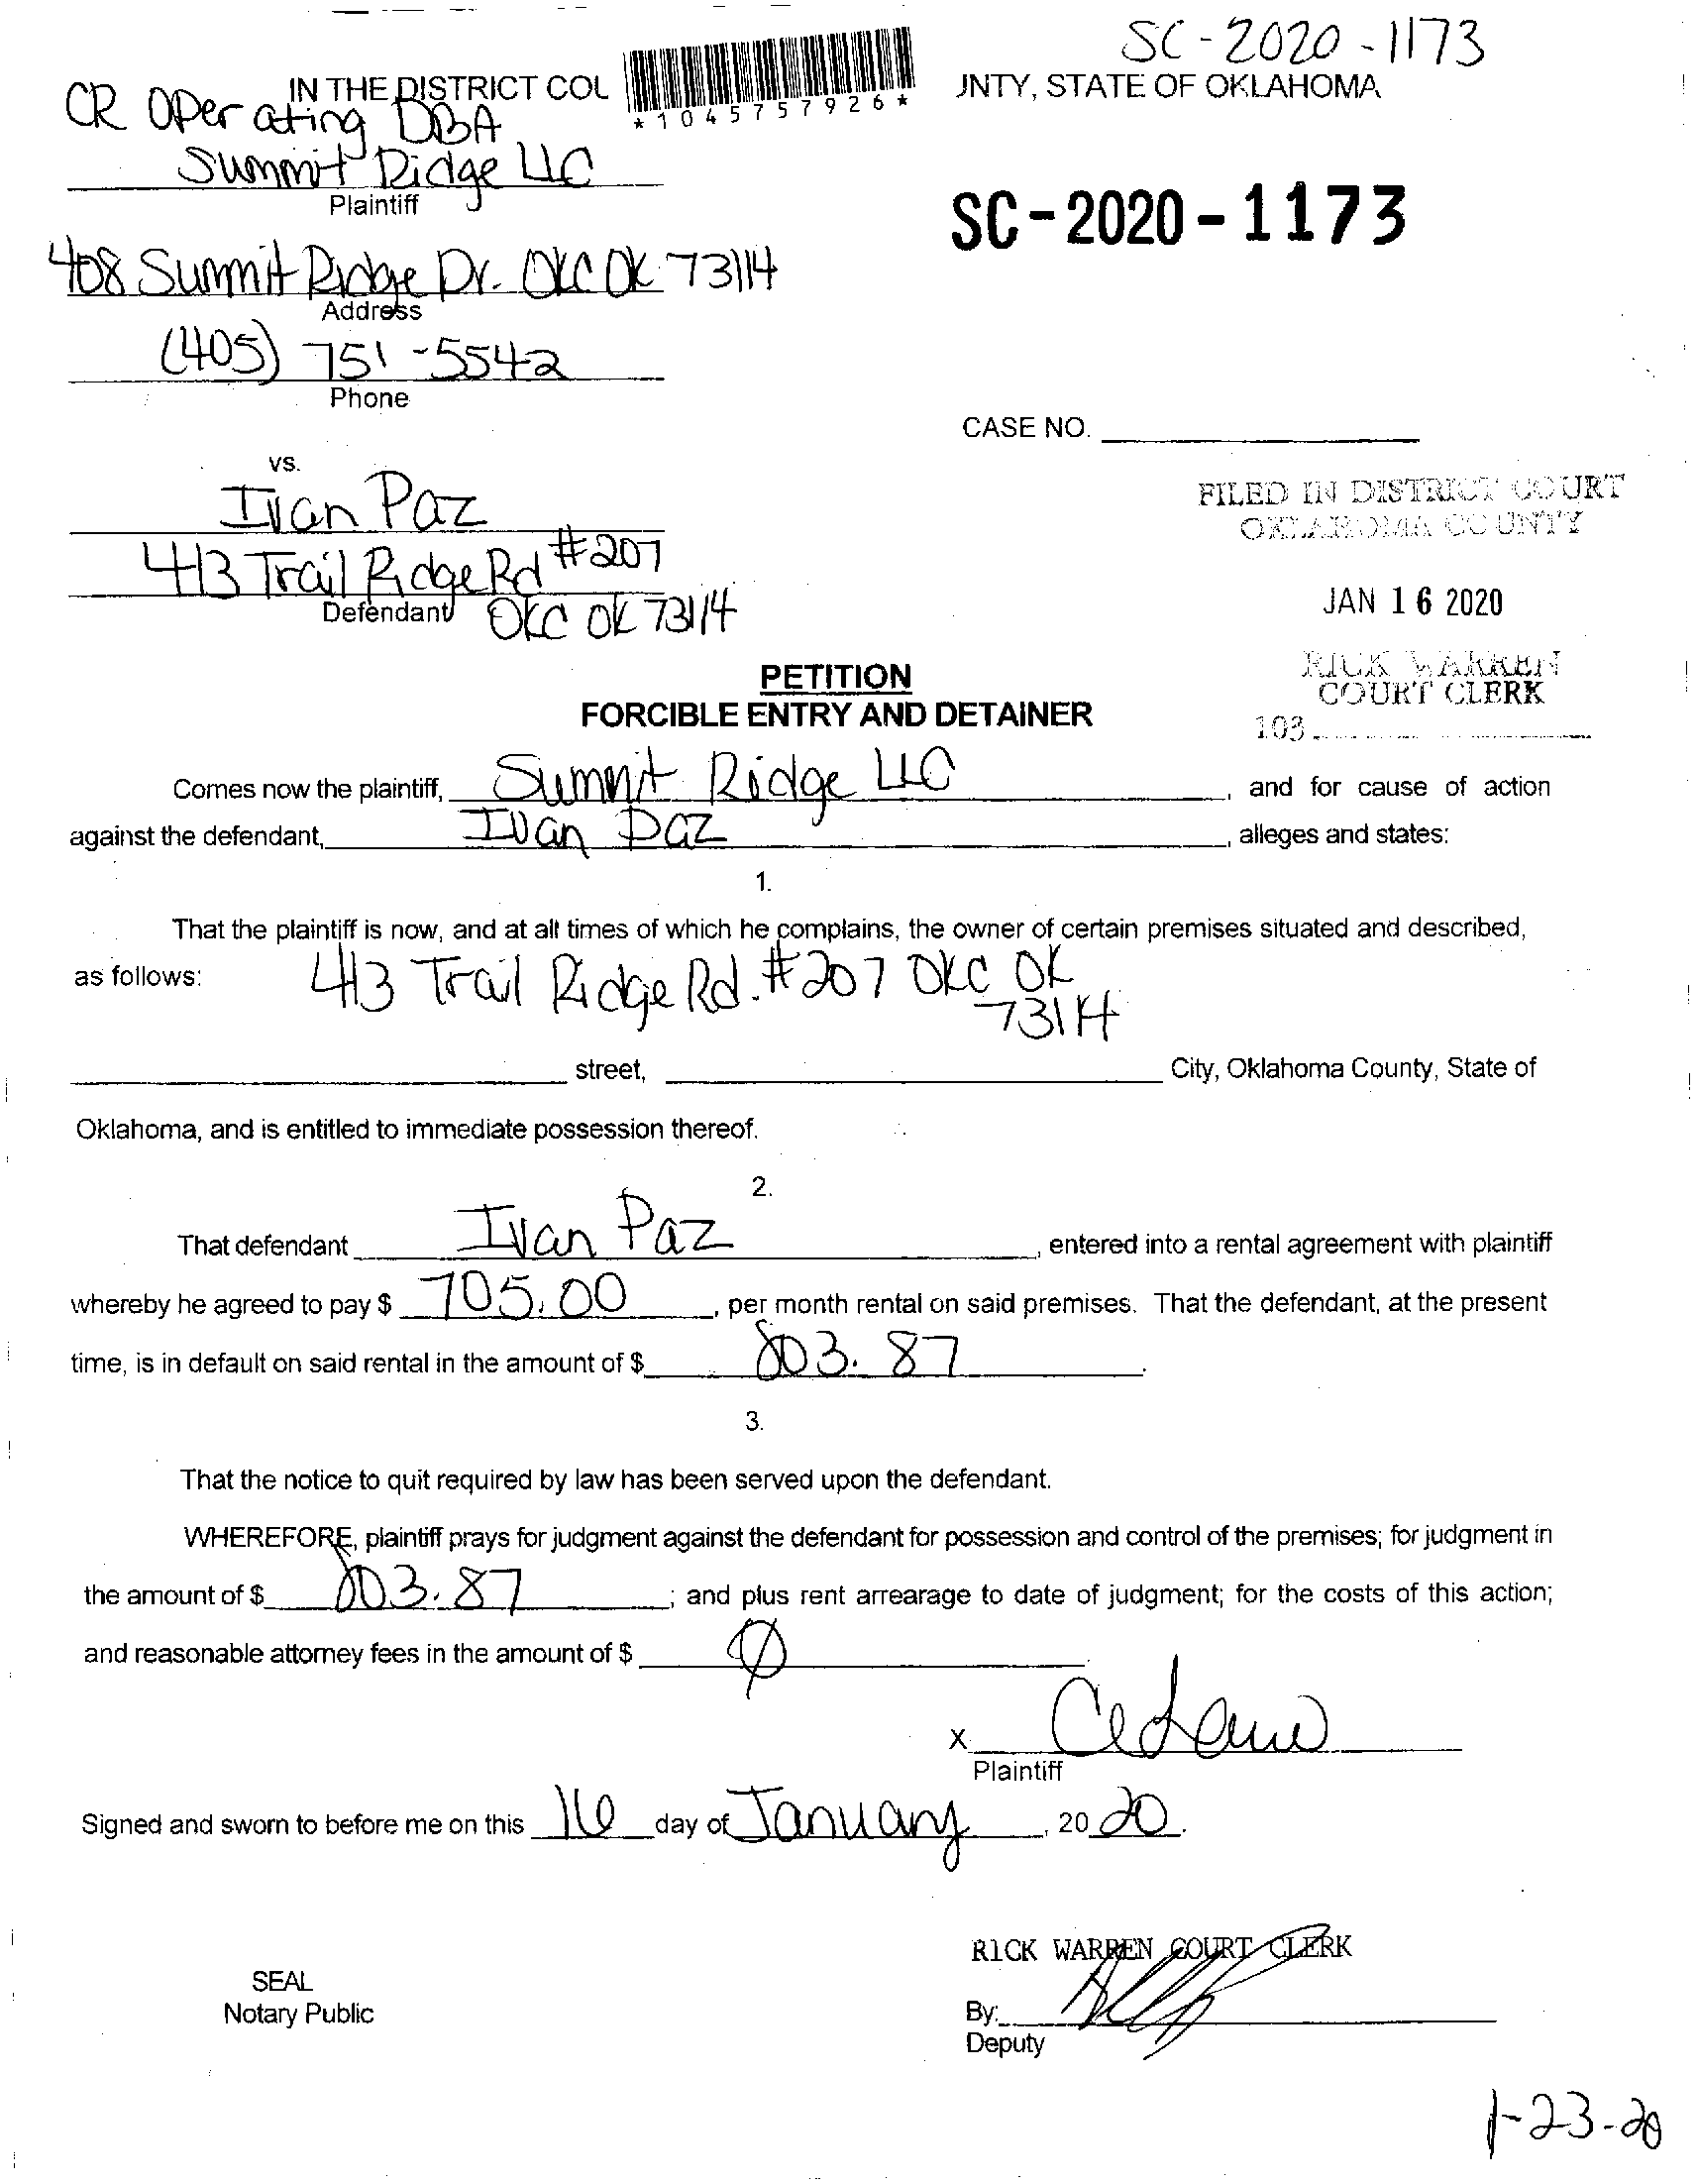 SC-2020-1173
IN THE DISTRICT COU
*1045757926*
UNTY, STATE OF OKLAHOMA
CR Operating DBA
Summit Ridge LLC
Plaintiff
SC-2020-1173
408 Summit Ridge Dr. OKC OK 73114
Address
(405) 751-5542
Phone
CASE NO.
vs.
Ivan Paz
FILED IN DISTRICT COURT
OKLAHOMA COUNTY
413 Trail Ridge Rd #207
Defendant OKC OK 73114
JAN 16 2020
PETITION
RICK WARREN
COURT CLERK
FORCIBLE ENTRY AND DETAINER
103
Comes now the plaintiff, Summit Ridge LLC, and for cause of action
against the defendant, Ivan Paz, alleges and states:
1.
That the plaintiff is now, and at all times of which he complains, the owner of certain premises situated and described,
as follows: 413 Trail Ridge Rd. #207 OKC OK
73114
street, City, Oklahoma County, State of
Oklahoma, and is entitled to immediate possession thereof.
2.
That defendant Ivan Paz, entered into a rental agreement with plaintiff
whereby he agreed to pay $ 705.00, per month rental on said premises. That the defendant, at the present
time, is in default on said rental in the amount of $ 803.87.
3.
That the notice to quit required by law has been served upon the defendant.
WHEREFORE, plaintiff prays for judgment against the defendant for possession and control of the premises; for judgment in
the amount of $ 803.87; and plus rent arrearage to date of judgment; for the costs of this action;
and reasonable attorney fees in the amount of $ 0
X
Plaintiff
Signed and sworn to before me on this 16 day of January, 2020.
RICK WARREN COURT CLERK
SEAL
Notary Public
By:
Deputy
1-23-20